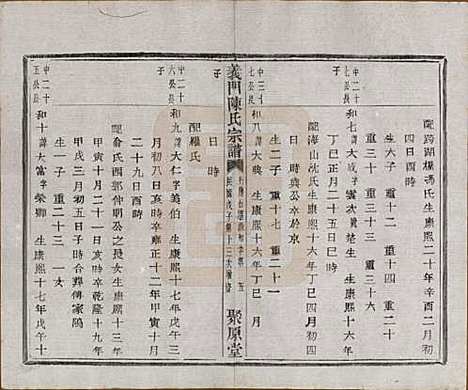 配跨湖橋馮氏生康熙二十年辛酉二月初
四日酉時
生六子 重十二 重十四
重三十 重三十三 重三十六
中三十七公長子
和七 諱大成 字雲次 葵生 生康熙十六年
丁巳正月二十五日巳時
配海山沈氏生康熙十六年丁巳四月初四
日時與公卒於京
生二子 重二十 重二十一
和八 諱大典 生康熙十六年丁巳 月
日時
義門陳氏宗譜
聚原堂
配羅氏
中二十六公長子
和九 諱大仁 字美伯 生康熙十七年戊午三
月初八日亥時卒雍正十二年甲寅十月
十九日酉時
配俞氏酉郭仲明公之長女生康熙十三年
甲寅十月二十日亥時卒乾隆十九年
甲戌三月初五日子時合葬傅家塢
生一子 重二十三
中二十五公長子
和十 諱大富 字榮卿 生康熙十七年戊午十